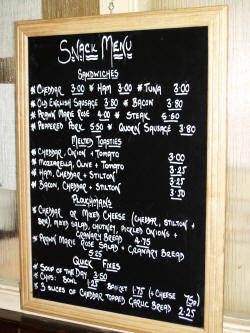 SNACK MENU
SANDWICHES
* CHEDDAR 3.00 * HAM 3.00 * TUNA 3.00
* OLD ENGLISH SAUSAGE 3.80 * BACON 3.80
* PRAWN MARIE ROSE 4.00 * STEAK 5.60
* PEPPERED PORK 5.50 * QUORN SAUSAGE 3.80
MELTED TOASTIES
* CHEDDAR, ONION + TOMATO 3.00
* MOZZARELLA, OLIVE + TOMATO 3.25
* HAM, CHEDDAR + STILTON 3.25
* BACON, CHEDDAR + STILTON 3.50
PLOUGHMANS
* CHEDDAR OR MIXED CHEESE (CHEDDAR, STILTON +
BRIE), MIXED SALAD, CHUTNEY, PICKLED ONIONS +
GRANARY BREAD 4.75
* PRAWN MARIE ROSE SALAD + GRANARY BREAD
5.25
QUICK FIXES
* SOUP OF THE DAY 3.50
* CHIPS: BOWL 1.25 BASKET 1.75 (+ CHEESE 75p)
* 3 SLICES OF CHEDDAR TOPPED GARLIC BREAD 2.25